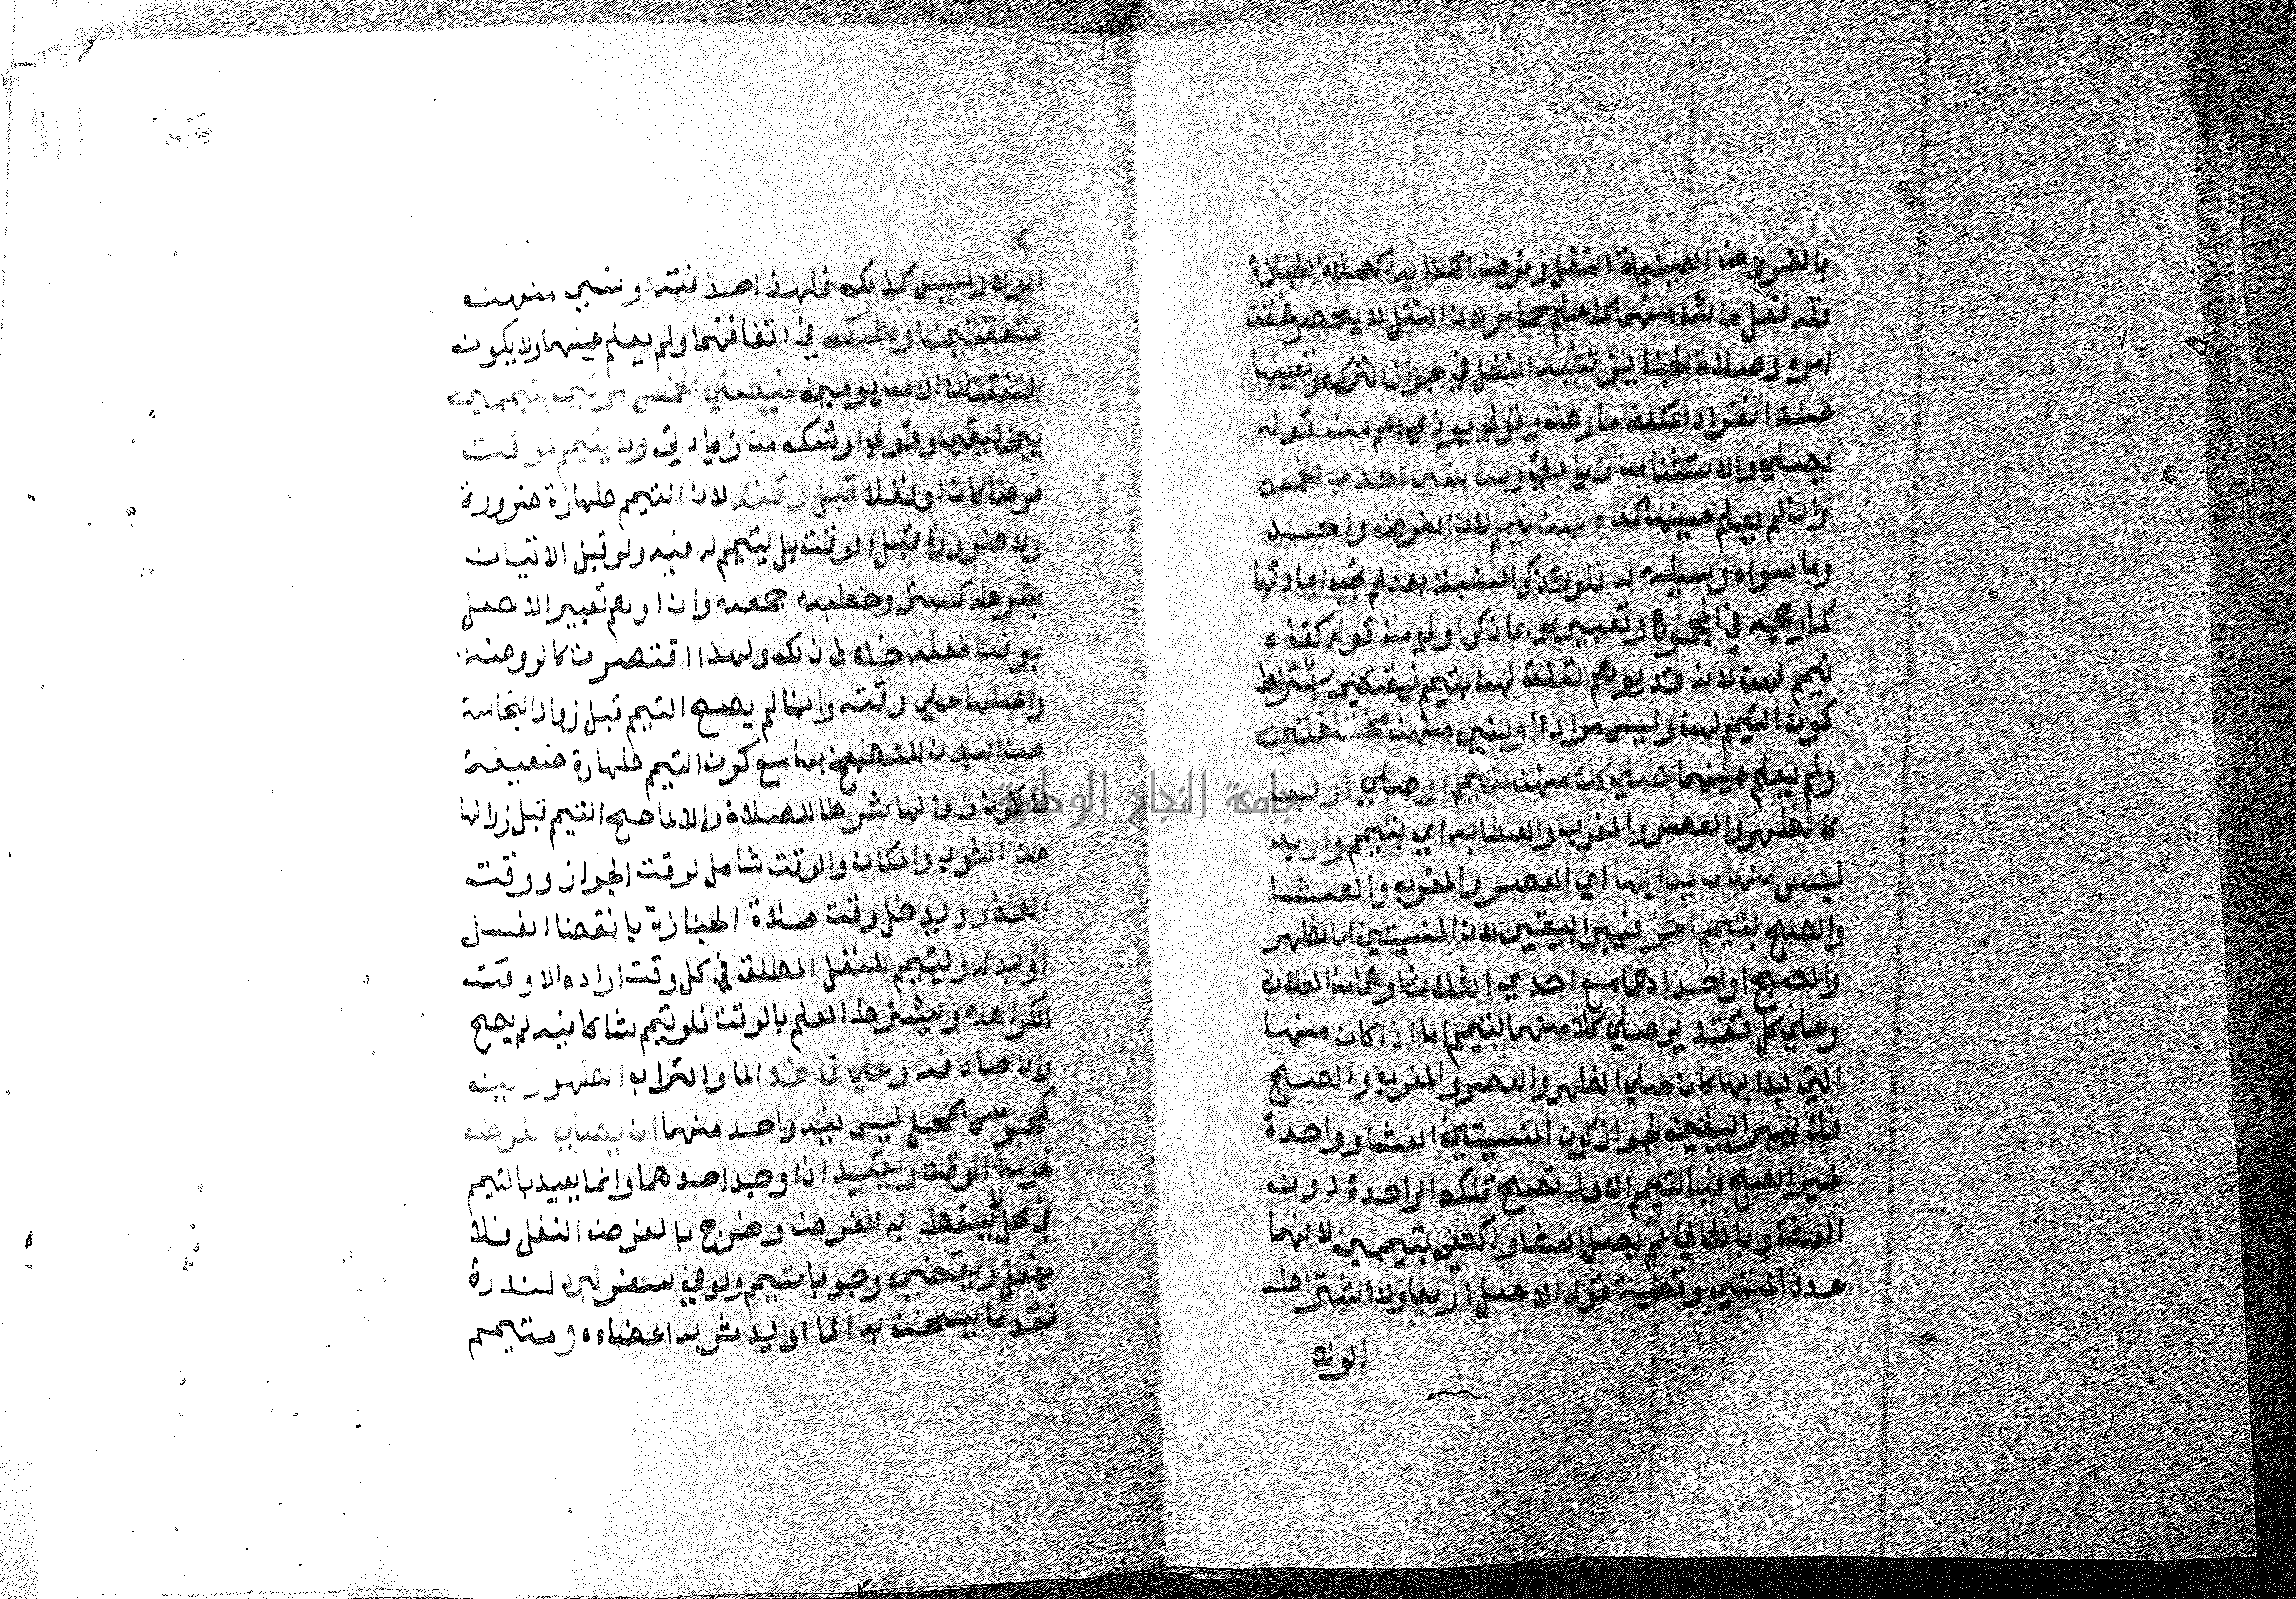 بالفروض العينية النفل وفروض الكفاية كصلاة الجنازة
فله فعل ما شا منهما كما علم مما مر لان النفل لا ينحصر فخفف
امره وصلاة الجنايز تشبه النفل في جواز الترك وتعينها
عند انفراد المكلف عارض وقولي يودي اعم من قوله
يصلي والاستثنا من زيادتي ومن نسي احدي الخمس
وان لم يعلم عينها كفاه لهن تيمم لان الفرض واحد
وما سواه وسيلة له فلو تذكر المنسية بعد لم تجب اعادتها
كما رجحه في المجموع وتعبيري بما ذكر اولي من قوله كفاه
تيمم لهن لانه قد يوهم تعلق لهن بتيمم فيقتضي اشتراط
كون التيمم لهن وليس مرادا او نسي منهن مختلفتين
ولم يعلم عينهما صلي كلا منهن بتيمم او صلي اربعا
كالظهر والعصر والمغرب والعشا به اي بتيمم واربعا
ليس منها ما بدا بها اي العصر والمغرب والعشا
والصبح بتيمم اخر فيبرا بيقين لان المنسيتين اما الظهر
والصبح او احداهما مع احدي الثلاث او هما من الثلاث
وعلي كل تقدير صلي كلا منهما بتيمم اما اذا كان منها
التي بدا بها كان صلي الظهر والعصر والمغرب والصبح
فلا يبرا بيقين لجواز كون المنسيتين العشا وواحدة
غير الصبح فبالتيمم الاول تصح تلك الواحدة دون
العشا وبالثاني لم يصل العشا واكتفي بتيممين لانهما
عدد المنسي وقضية قول الاصل اربعا ولا اشتراط
الولا
الولا وليس كذلك فلهذا حذفته او نسي منهن
متفقتين او شك في اتفاقهما ولم يعلم عينهما ولا يكون
المتفقتان الا من يومين فيصلي الخمس مرتين بتيممين
يبرا بيقين وقولي او شك من زيادتي ولا يتيمم لموقت
فرضا كان او نفلا قبل وقته لان التيمم طهارة ضرورة
ولا ضرورة قبل الوقت بل يتيمم له فيه ولو قبل الاتيان
بشرطه كستر وخطبة جمعة وان اوهم تعبير الاصل
بوقت فعله خلاف ذلك ولهذا اقتصرت كالروضة
واصلها علي وقته وانما لم يصح التيمم قبل زوال النجاسة
عن البدن للتضمخ بها مع كون التيمم طهارة ضعيفة
لا لكون زوالها شرطا للصلاة والا لما صح التيمم قبل زوالها
عن الثوب والمكان والوقت شامل لوقت الجواز ووقت
العذر ويدخل وقت صلاة الجنازة بانقضا الغسل
او بدله ويتيمم للنفل المطلق في كل وقت اراده الا وقت
الكراهة ويشترط العلم بالوقت فلو تيمم شاكا فيه لم يصح
وان صادفه وعلي فاقد الما والتراب الطهورين
كمحبوس بمحل ليس فيه واحد منهما ان يصلي الفرض
لحرمة الوقت ويعيد اذا وجد احدهما وانما يعيد بالتيمم
في محل يسقط به الفرض وخرج بالفرض النفل فلا
يفعل ويقضي وجوبا متيمم ولو في سفر لبرد لندرة
فقد ما يسخن به الما او يدثر به اعضاءه ومتيمم
جامعة النجاح الوطنية